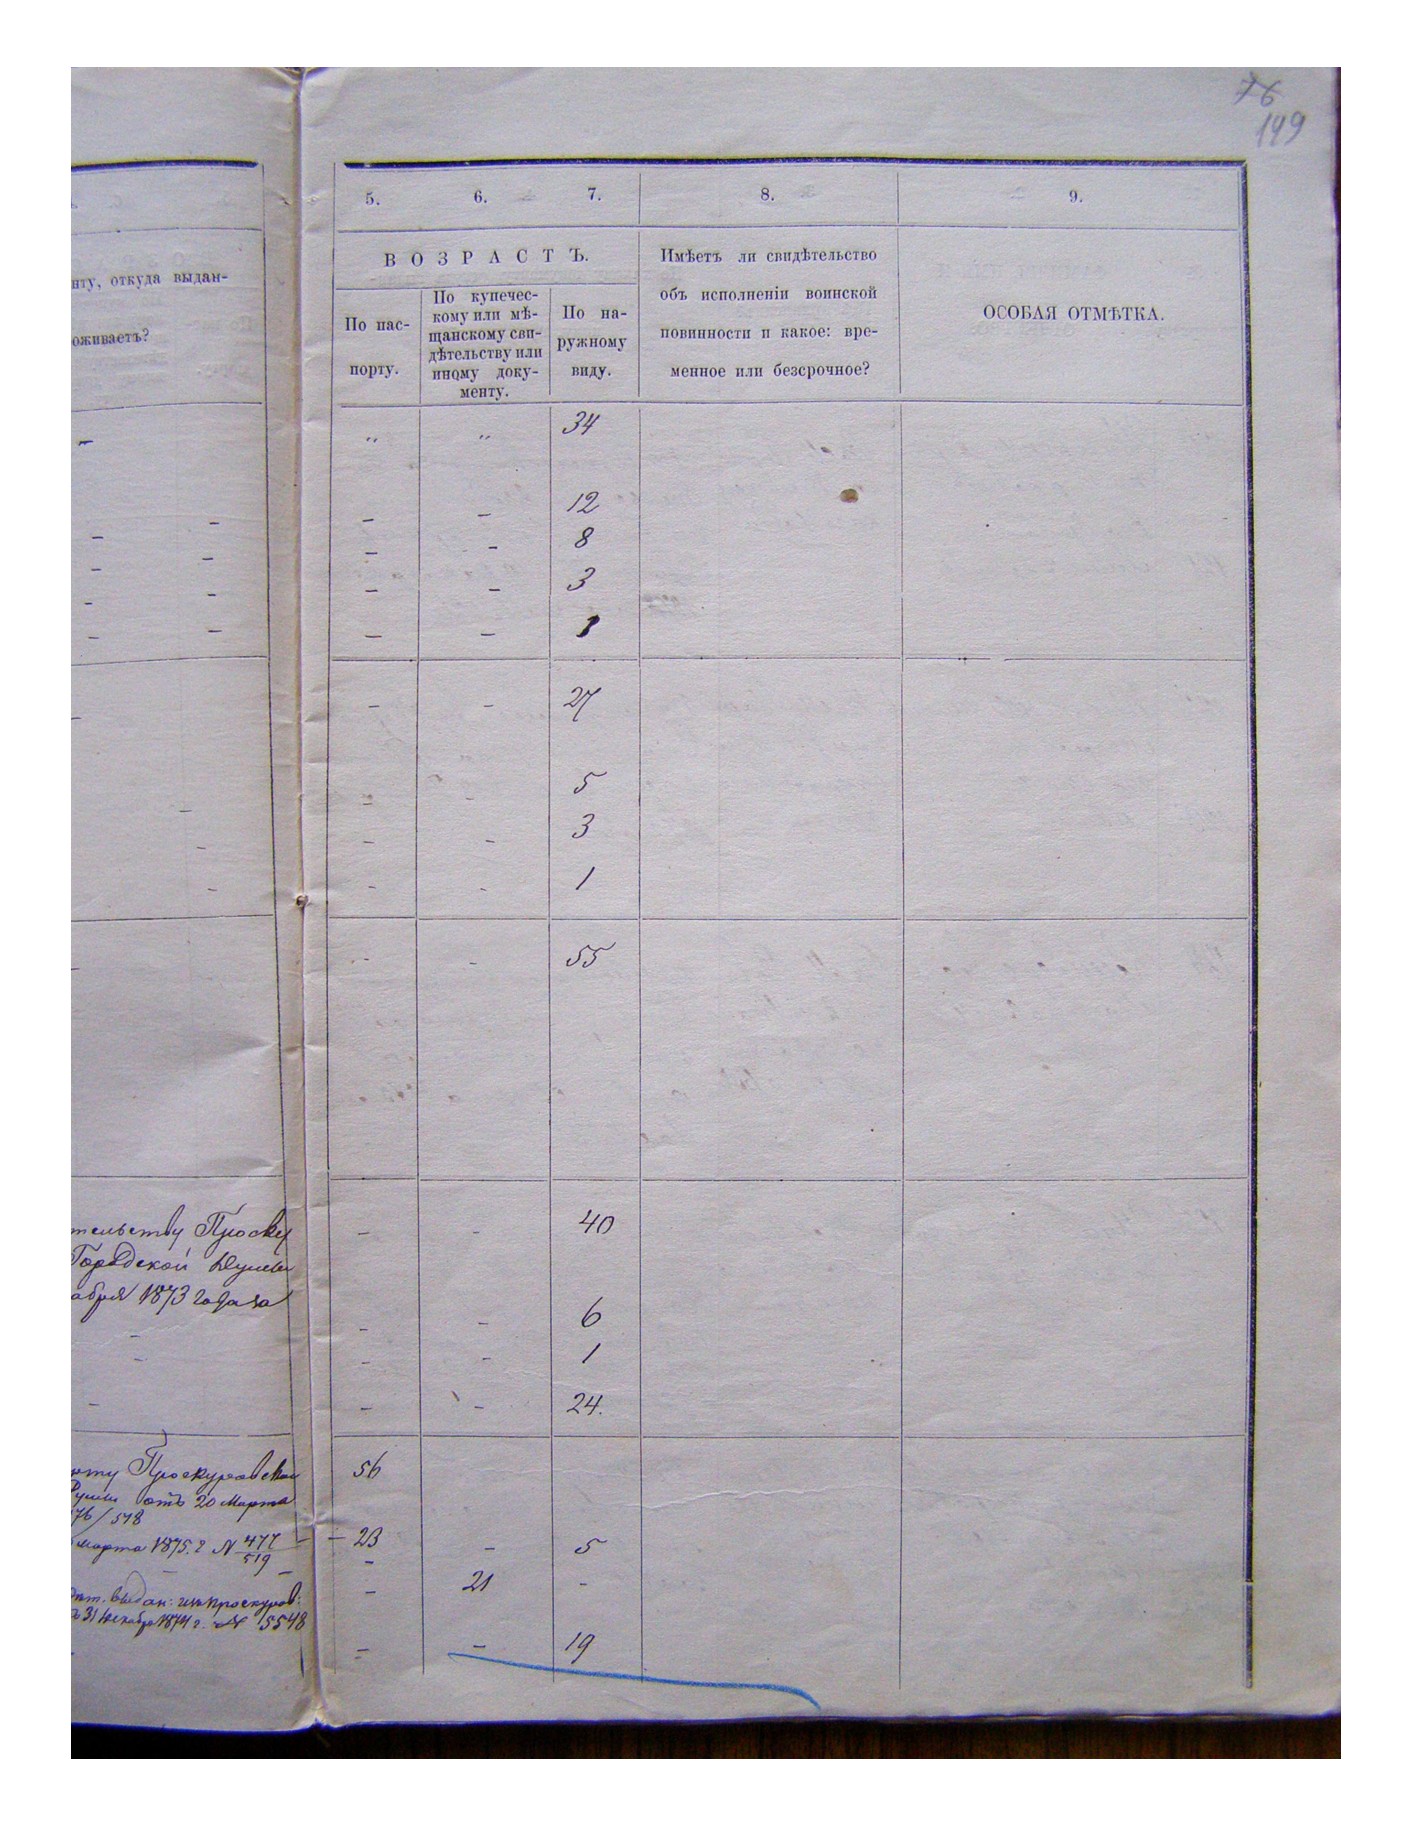 76
149
5. 6. 7. 8. 9.
ВОЗРАСТЪ.
По пас-
порту.
По купечес-
кому или мѣ-
щанскому сви-
дѣтельству или
иному доку-
менту.
По на-
ружному
виду.
Имѣетъ ли свидѣтельство
объ исполненіи воинской
повинности и какое: вре-
менное или безсрочное?
ОСОБАЯ ОТМѢТКА.
нту, откуда выдан-
оживаетъ?
„ „ 34
– – 12
– – 8
– – 3
– – 1
– – 27
– – 5
– – 3
– – 1
– – 55
тельству Проску
Городской Думы
абря 1873 года за
– – 40
– – 6
– – 1
– – 24.
нту Проскуровской
Думы отъ 20 Марта
76/518
марта 1875. г N 477/519
выдан: изъ Проскуров:
31 Декабря 1874 г. № 5548
56
– 23 – 5
– 21 –
– – 19